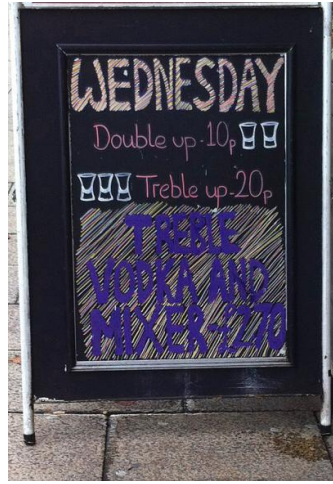 WEDNESDAY
Double up-10p
Treble up-20p
TREBLE
VODKA AND
MIXER-£270